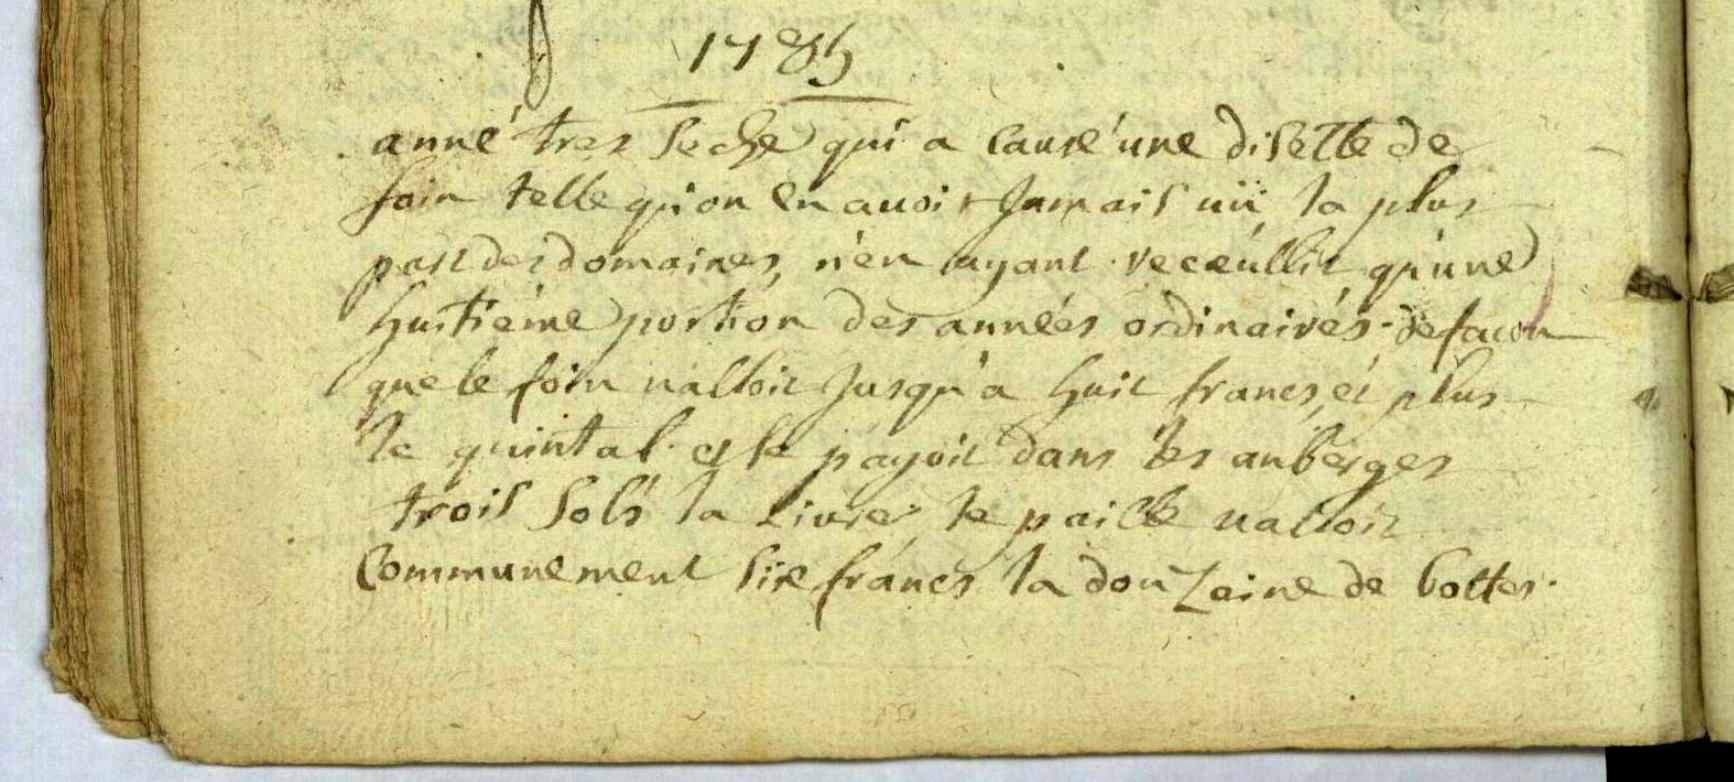 1785
anné tres seche qui a causé une disette de
foin telle qu'on en avoit Jamais vü, la plus
part des domaines, n'en ayant receüillit qu'une
huitiéme portion des années ordinairés. de facon
que le foin valloit Jusqu'a huit francs, et plus
le quintal. et se payoit dans les auberges
trois sols la Livre, le paille valloit
Communement six francs la douzaine de bottes.